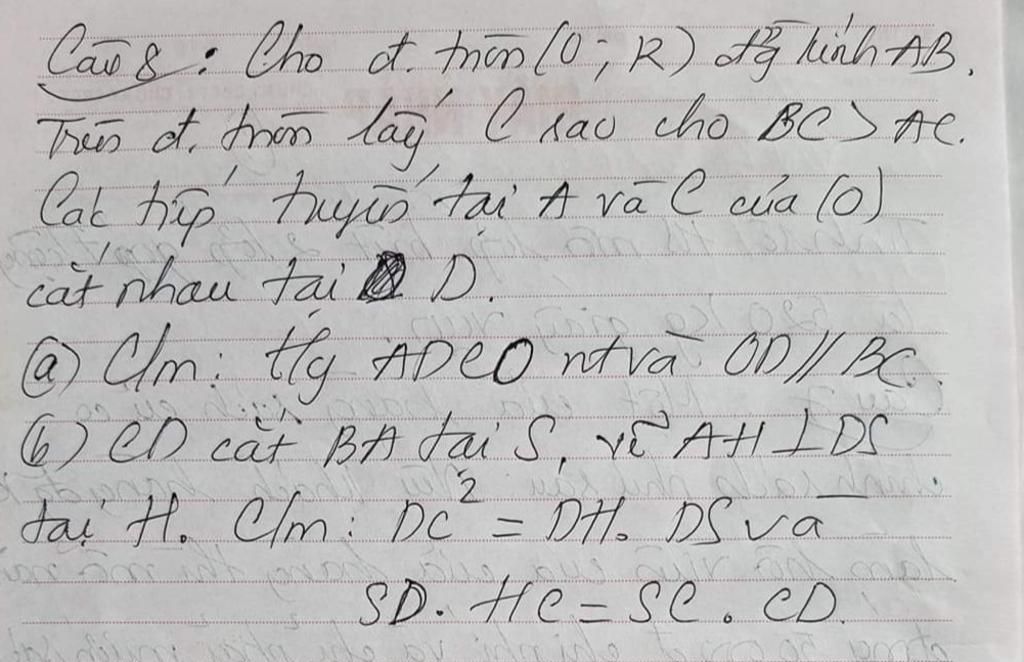 Câu 8 : Cho đ. tròn (O ; R) đg kính AB.
Trên đ. tròn lấy C sao cho BC > AC.
Các tiếp tuyến tại A và C của (O)
cắt nhau tại D.
(a) C/m : t/g ADCO nt và OD // BC.
(b) CD cắt BA tại S, vẽ AH ⊥ DS
tại H. C/m : DC² = DH. DS và
SD. HC = SC. CD.